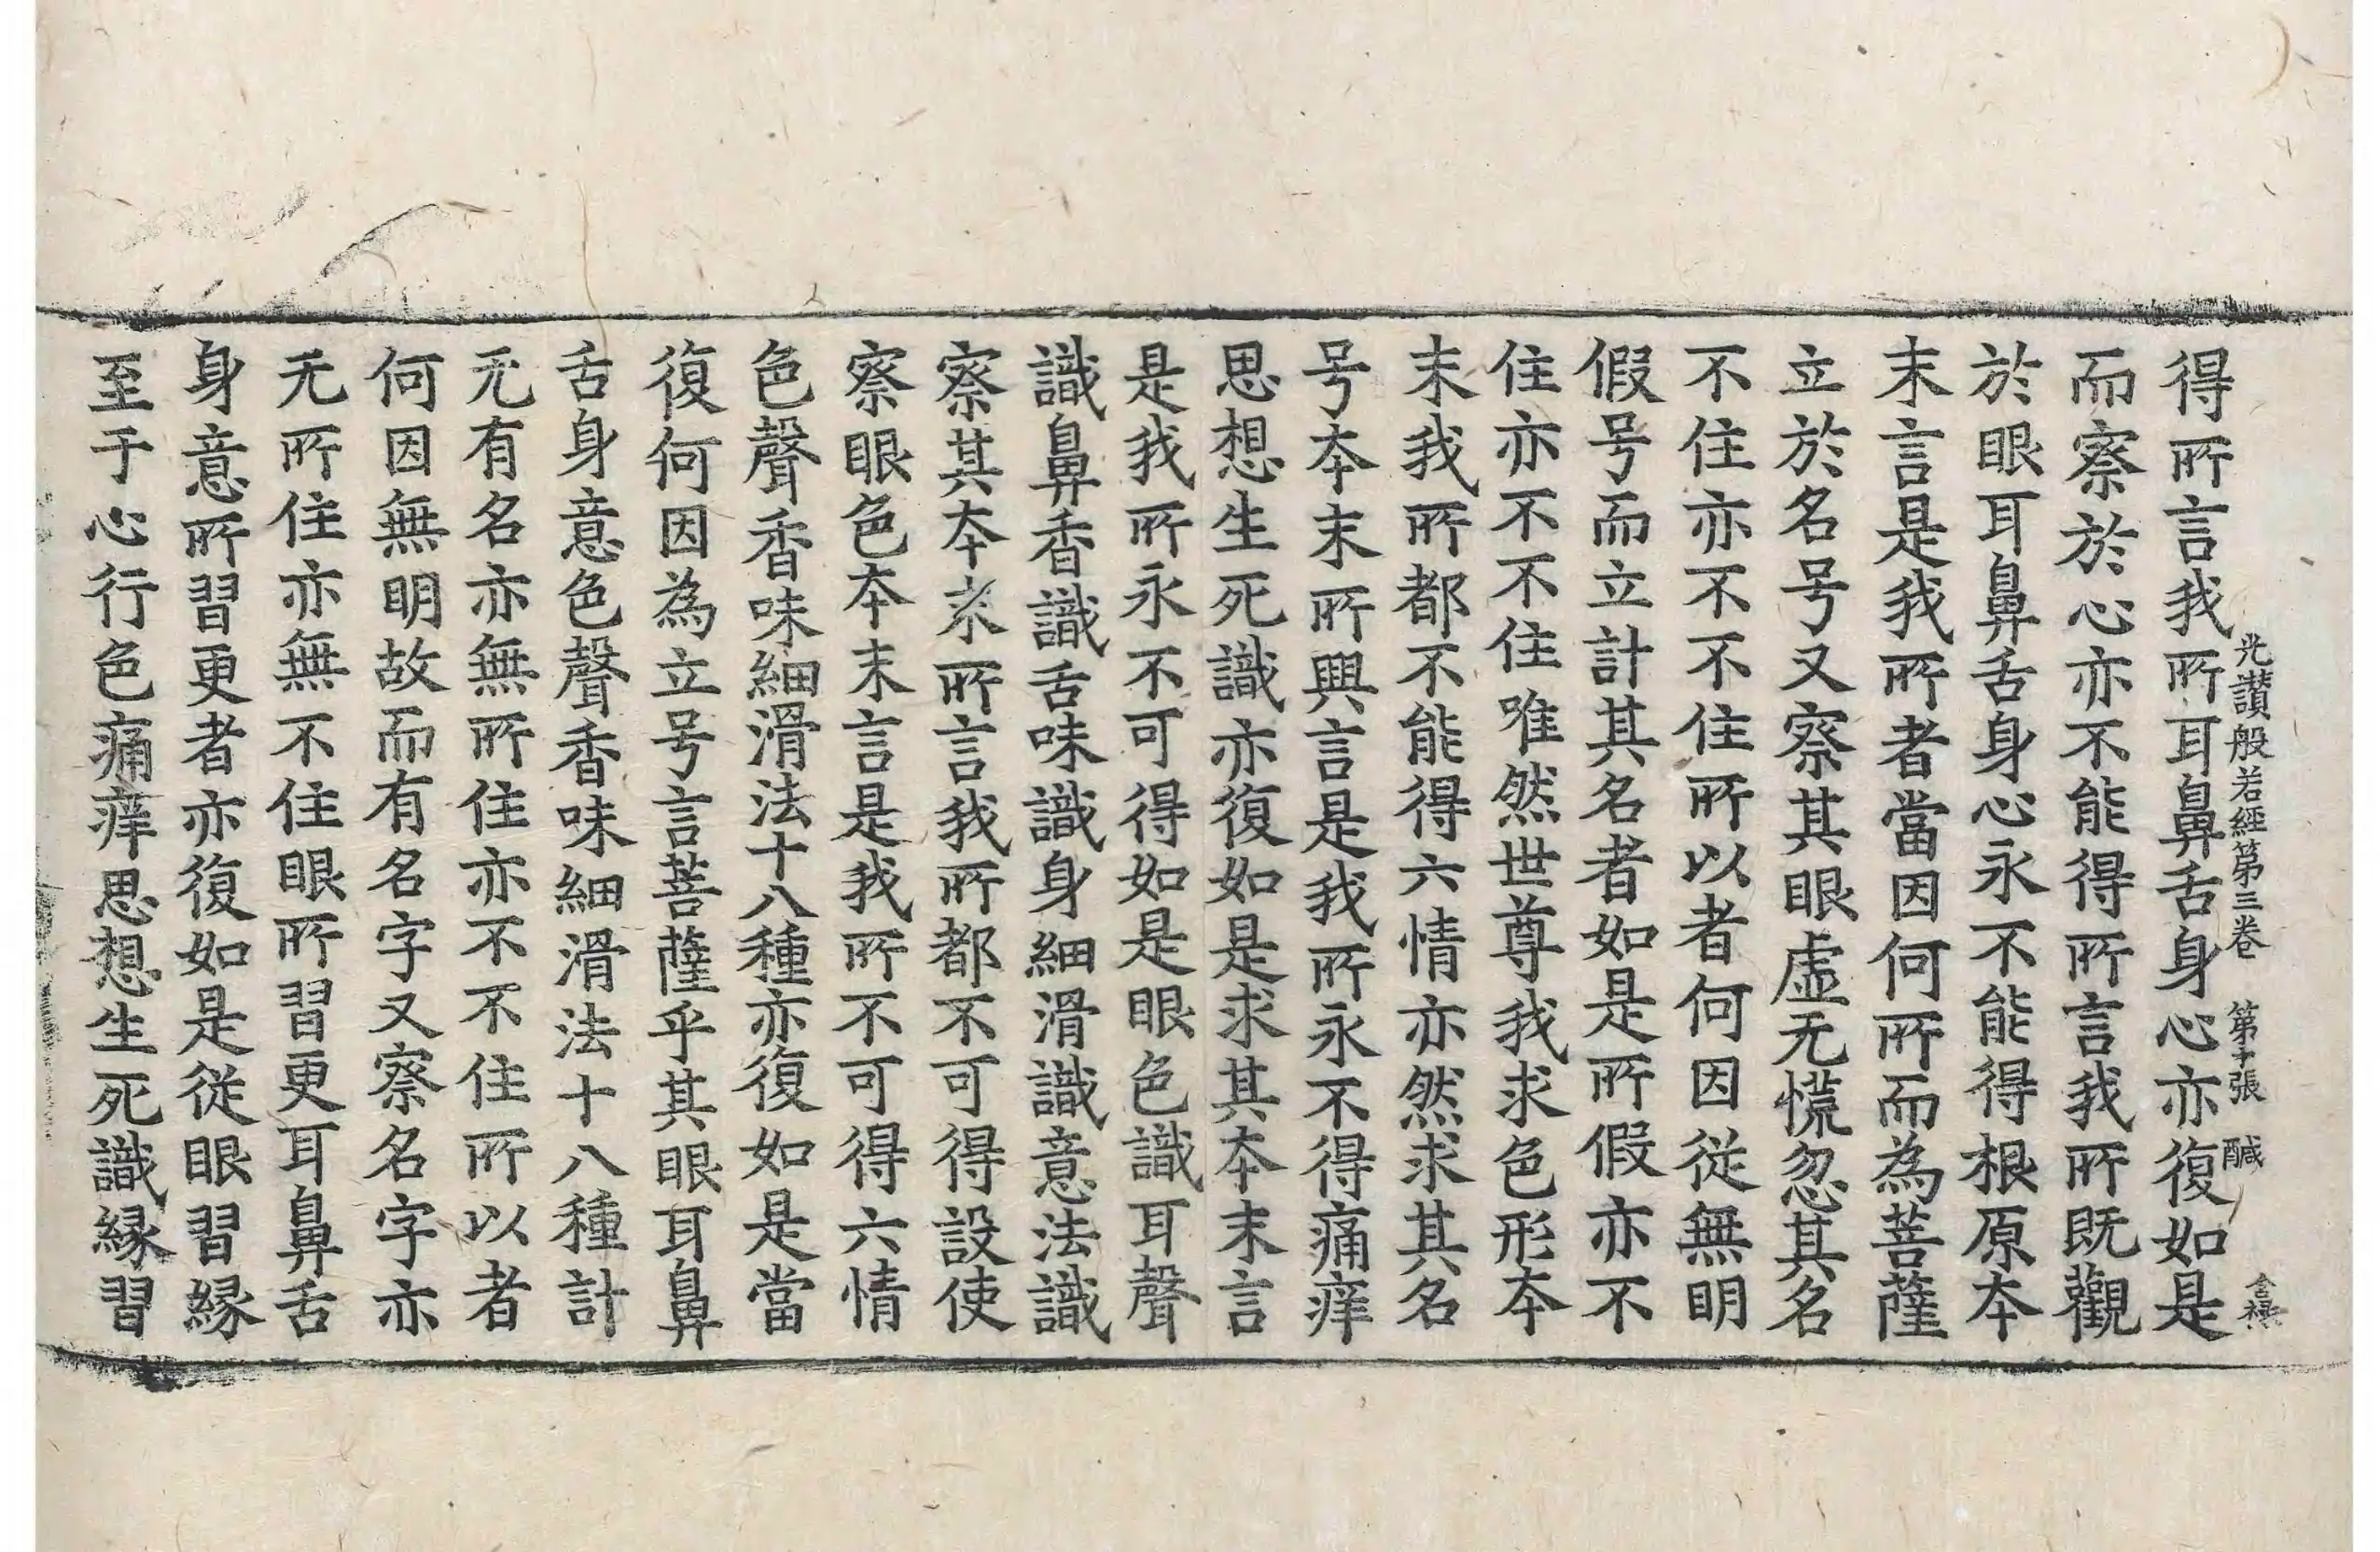 光讚般若經第三卷　第十張　醎
得所言我所耳鼻舌身心亦復如是
而察於心亦不能得所言我所既觀
於眼耳鼻舌身心永不能得根原本
末言是我所者當因何所而為菩薩
立於名号又察其眼虛无慌忽其名
不住亦不不住所以者何因從無明
假号而立計其名者如是所假亦不
住亦不不住唯然世尊我求色形本
末我所都不能得六情亦然求其名
号本末所興言是我所永不得痛痒
思想生死識亦復如是求其本末言
是我所永不可得如是眼色識耳聲
識鼻香識舌味識身細滑識意法識
察其本末所言我所都不可得設使
察眼色本末言是我所不可得六情
色聲香味細滑法十八種亦復如是當
復何因為立号言菩薩乎其眼耳鼻
舌身意色聲香味細滑法十八種計
无有名亦無所住亦不不住所以者
何因無明故而有名字又察名字亦
无所住亦無不住眼所習更耳鼻舌
身意所習更者亦復如是從眼習緣
至于心行色痛痒思想生死識緣習